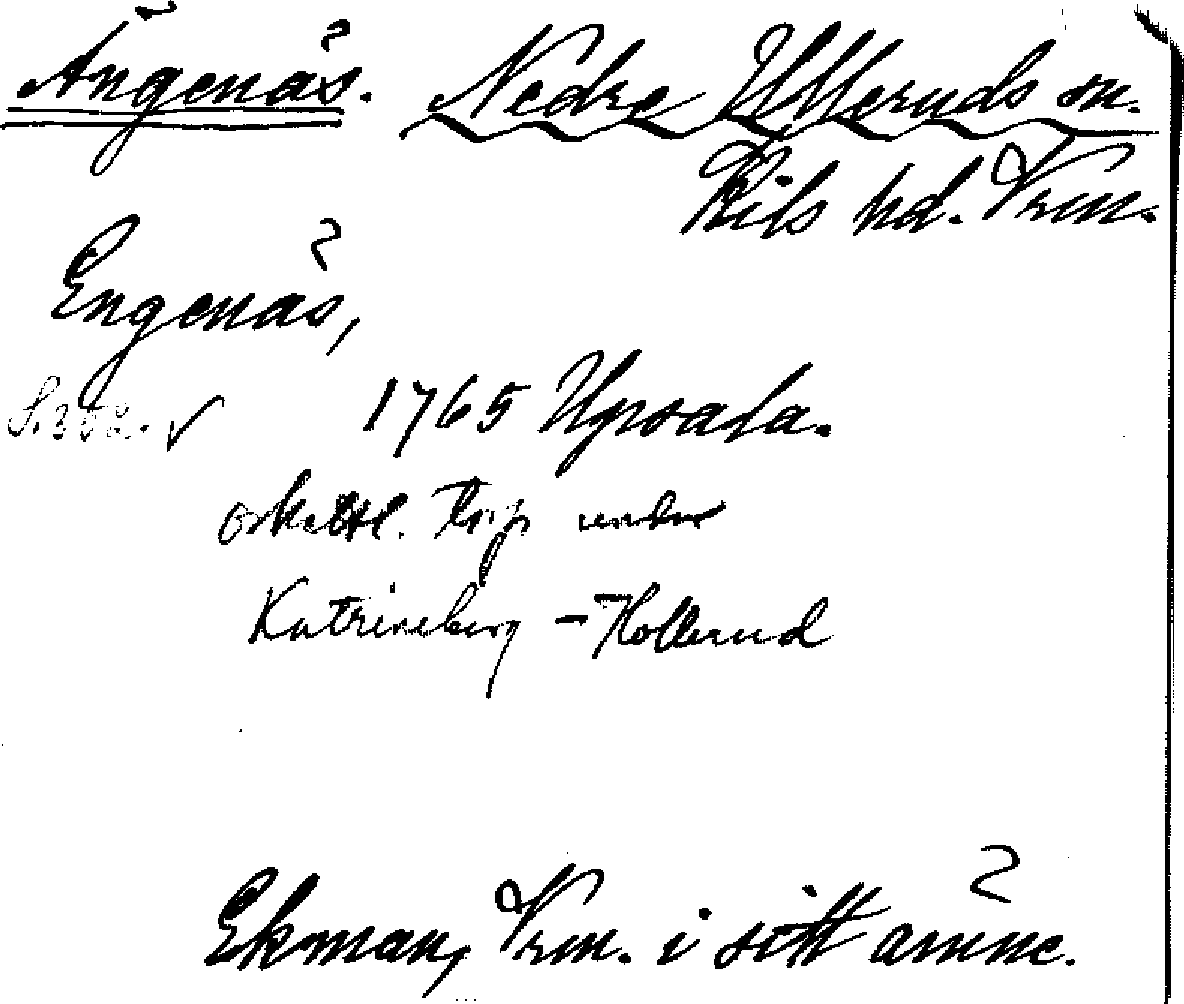 Ängenäs. Nedre Ulleruds sn.
Kils hd. Vrm.
Engenäs,
S. 352. √ 1765 Upsala.
oskattl. torp under
Katrineberg – Hollerud
Ekman, Vrm. i sitt ämne.